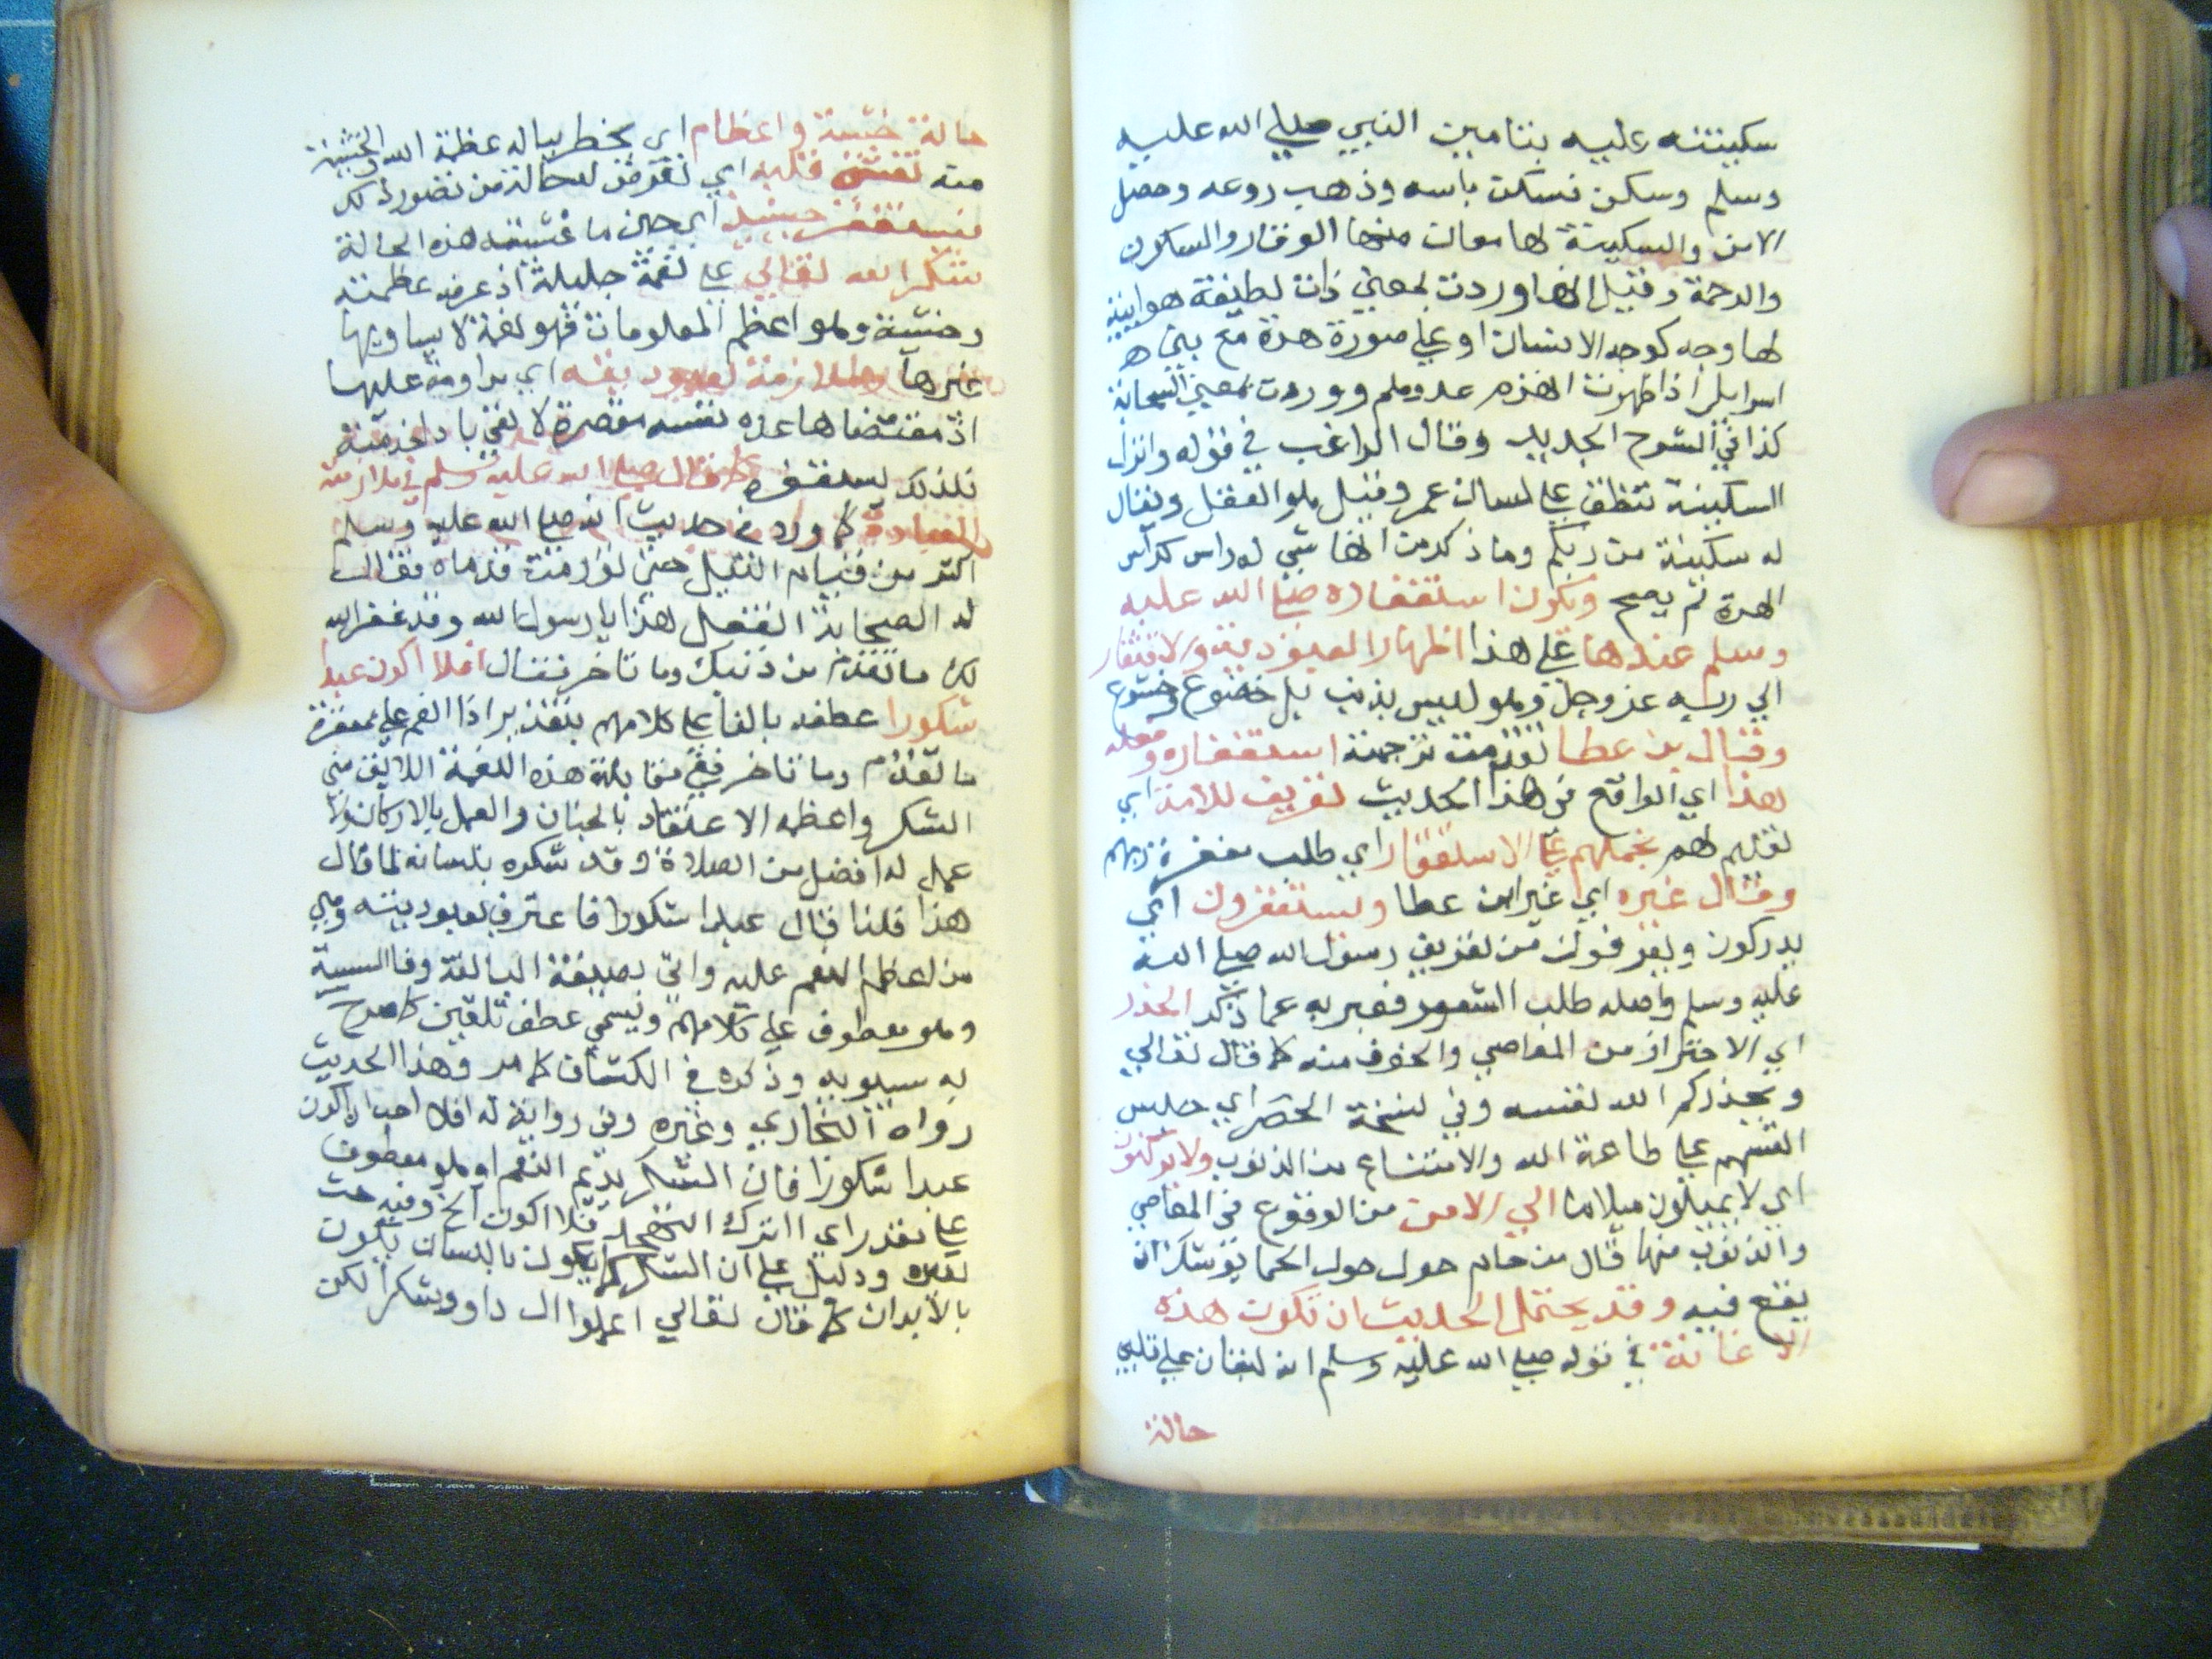 سكينته عليه بتامين النبي صلي الله عليه
وسلم وسكن فسكت باسه وذهب روعه وحصل
الامن والسكينة لها معان منها الوقار والسكون
والرحمة وقيل انها وردت بمعني ذات لطيفة هوايية
لها وجه كوجه الانسان او علي صورة هرة مع بني
اسرايل اذا ظهرت انهزم عدوهم ووردت بمعني السحابة
كذا في الشرح الجديد وقال الراغب في قوله وانزل
السكينة تنطق علي لسان عمر وقيل هو العقل ويقال
له سكينة من ربكم وما ذكر من انها شي له راس كراس
الهرة لم يصح ويكون استغفاره صلي الله عليه
وسلم عندها علي هذا اظهارا لعبوديته والافتقار
الي ربه عز وجل وهو ليس بذنب بل خضوع وخشوع
وقال بن عطا تقدمت ترجمته استغفاره وفعله
هذا اي الواقع في هذا الحديث تعريف للامة اي
تعليم لهم يحملهم علي الاستغفار اي طلب مغفرة ربهم
وقال غيره اي غير ابن عطا ويستشعرون اي
يدركون ويعرفون من تعريف رسول الله صلي الله
عليه وسلم واصله طلب الشعور فعبر به عما ذكر الحذر
اي الاحتراز من المعاصي والخوف منه كما قال تعالي
ويحذركم الله نفسه وفي نسخة الحصر اي حبس
انفسهم علي طاعة الله والامتناع من الذنوب ولا يركنون
اي لا يميلون ميلا ما الي الامن من الوقوع في المعاصي
والذنوب منها قال من حام حول حول الحما يوشك ان
يقع فيه وقد يحتمل الحديث ان تكون هذه
الاغانة في قوله صلي الله عليه وسلم انه ليغان علي قلبي
حالة
حالة خشية واعظام اي يخطر بباله عظمة الله والخشية
منه تغشي قلبه اي تعرض لحالة من تصور ذلك
فيستغفر حينيذ اي حين ما غشيته هذه الحالة
شكرا لله تعالي علي نعمة جليلة اذ عرفه عظمته
وخشيته وهو اعظم المعلومات فهو نعمة لا يساويها
غيرها وملازمة لعبوديته اي مداومة عليها
اذ مقتضاها عده نفسه مقصرة لا تفي باداخدمته
فلذلك يستغفره كما قال صلي الله عليه وسلم في ملازمة
العبادة كما ورد في حديث انه صلي الله عليه وسلم
اكثر من قيام الليل حتي تورمت قدماه فقالت
له الصحابة اتفعل هذا يا رسول الله وقد غفر الله
لك ما تقدم من ذنبك وما تاخر فقال افلا اكون عبدا
شكورا عطفه بالفا علي كلامهم بتقدير اذا انعم علي بمغفرة
ما تقدم وما تاخر ففي مقابلة هذه النعمة اللايق مني
الشكر واعظمه الاعتقاد بالجنان والعمل بالاركان ولا
عمل له افضل من الصلاة وقد شكره بلسانه لما قال
هذا قلنا قال عبدا شكورا فاعترف بعبوديته وهي
من اعظم النعم عليه واتي بصيغة المبالغة وفا السببية
وهو معطوف علي كلامهم ويسمي عطف تلقين كما صرح
به سيبويه وذكره في الكشاف كما مر وهذا الحديث
رواه البخاري وغيره وفي رواية له افلا احب ان اكون
عبدا شكورا فان الشكر يديم النعم او هو معطوف
علي مقدر اي ااترك التهجد فلا اكون الخ وفيه حث
لغيره ودليل علي ان الشكر كما يكون باللسان يكون
بالابدان كما قال تعالي اعملوا ال داوود شكرا لكن